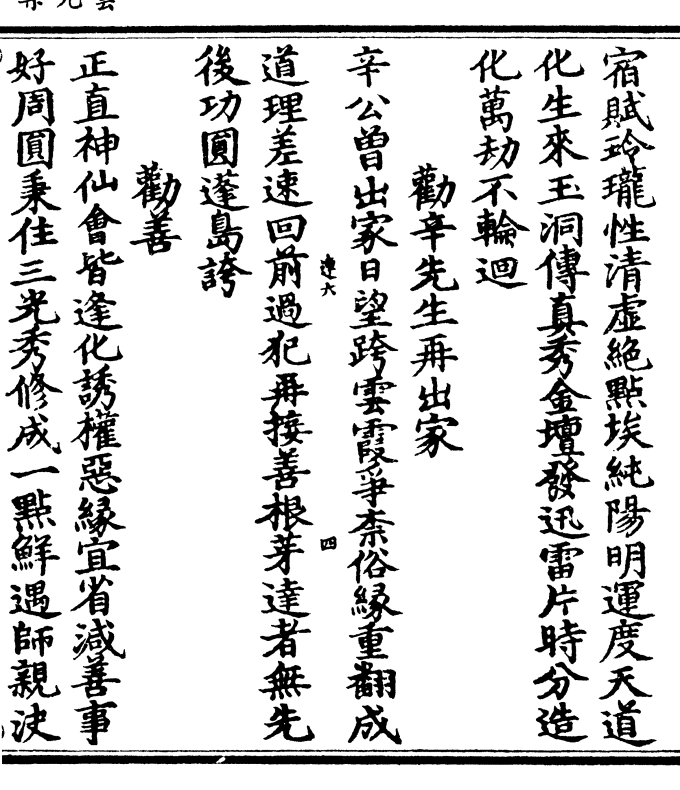 宿賦玲瓏性清虛絕點埃純陽明運度天道
化生來玉洞傳真秀金壇發迅雷片時分造
化萬劫不輪迴
勸辛先生再出家
辛公曾出家日望跨雲霞爭柰俗緣重翻成
連六 四
道理差速回前過犯再接善根芽達者無先
後功圓蓬島誇
勸善
正直神仙會皆逢化誘權惡緣宜省減善事
好周圓秉住三光秀修成一點鮮遇師親決